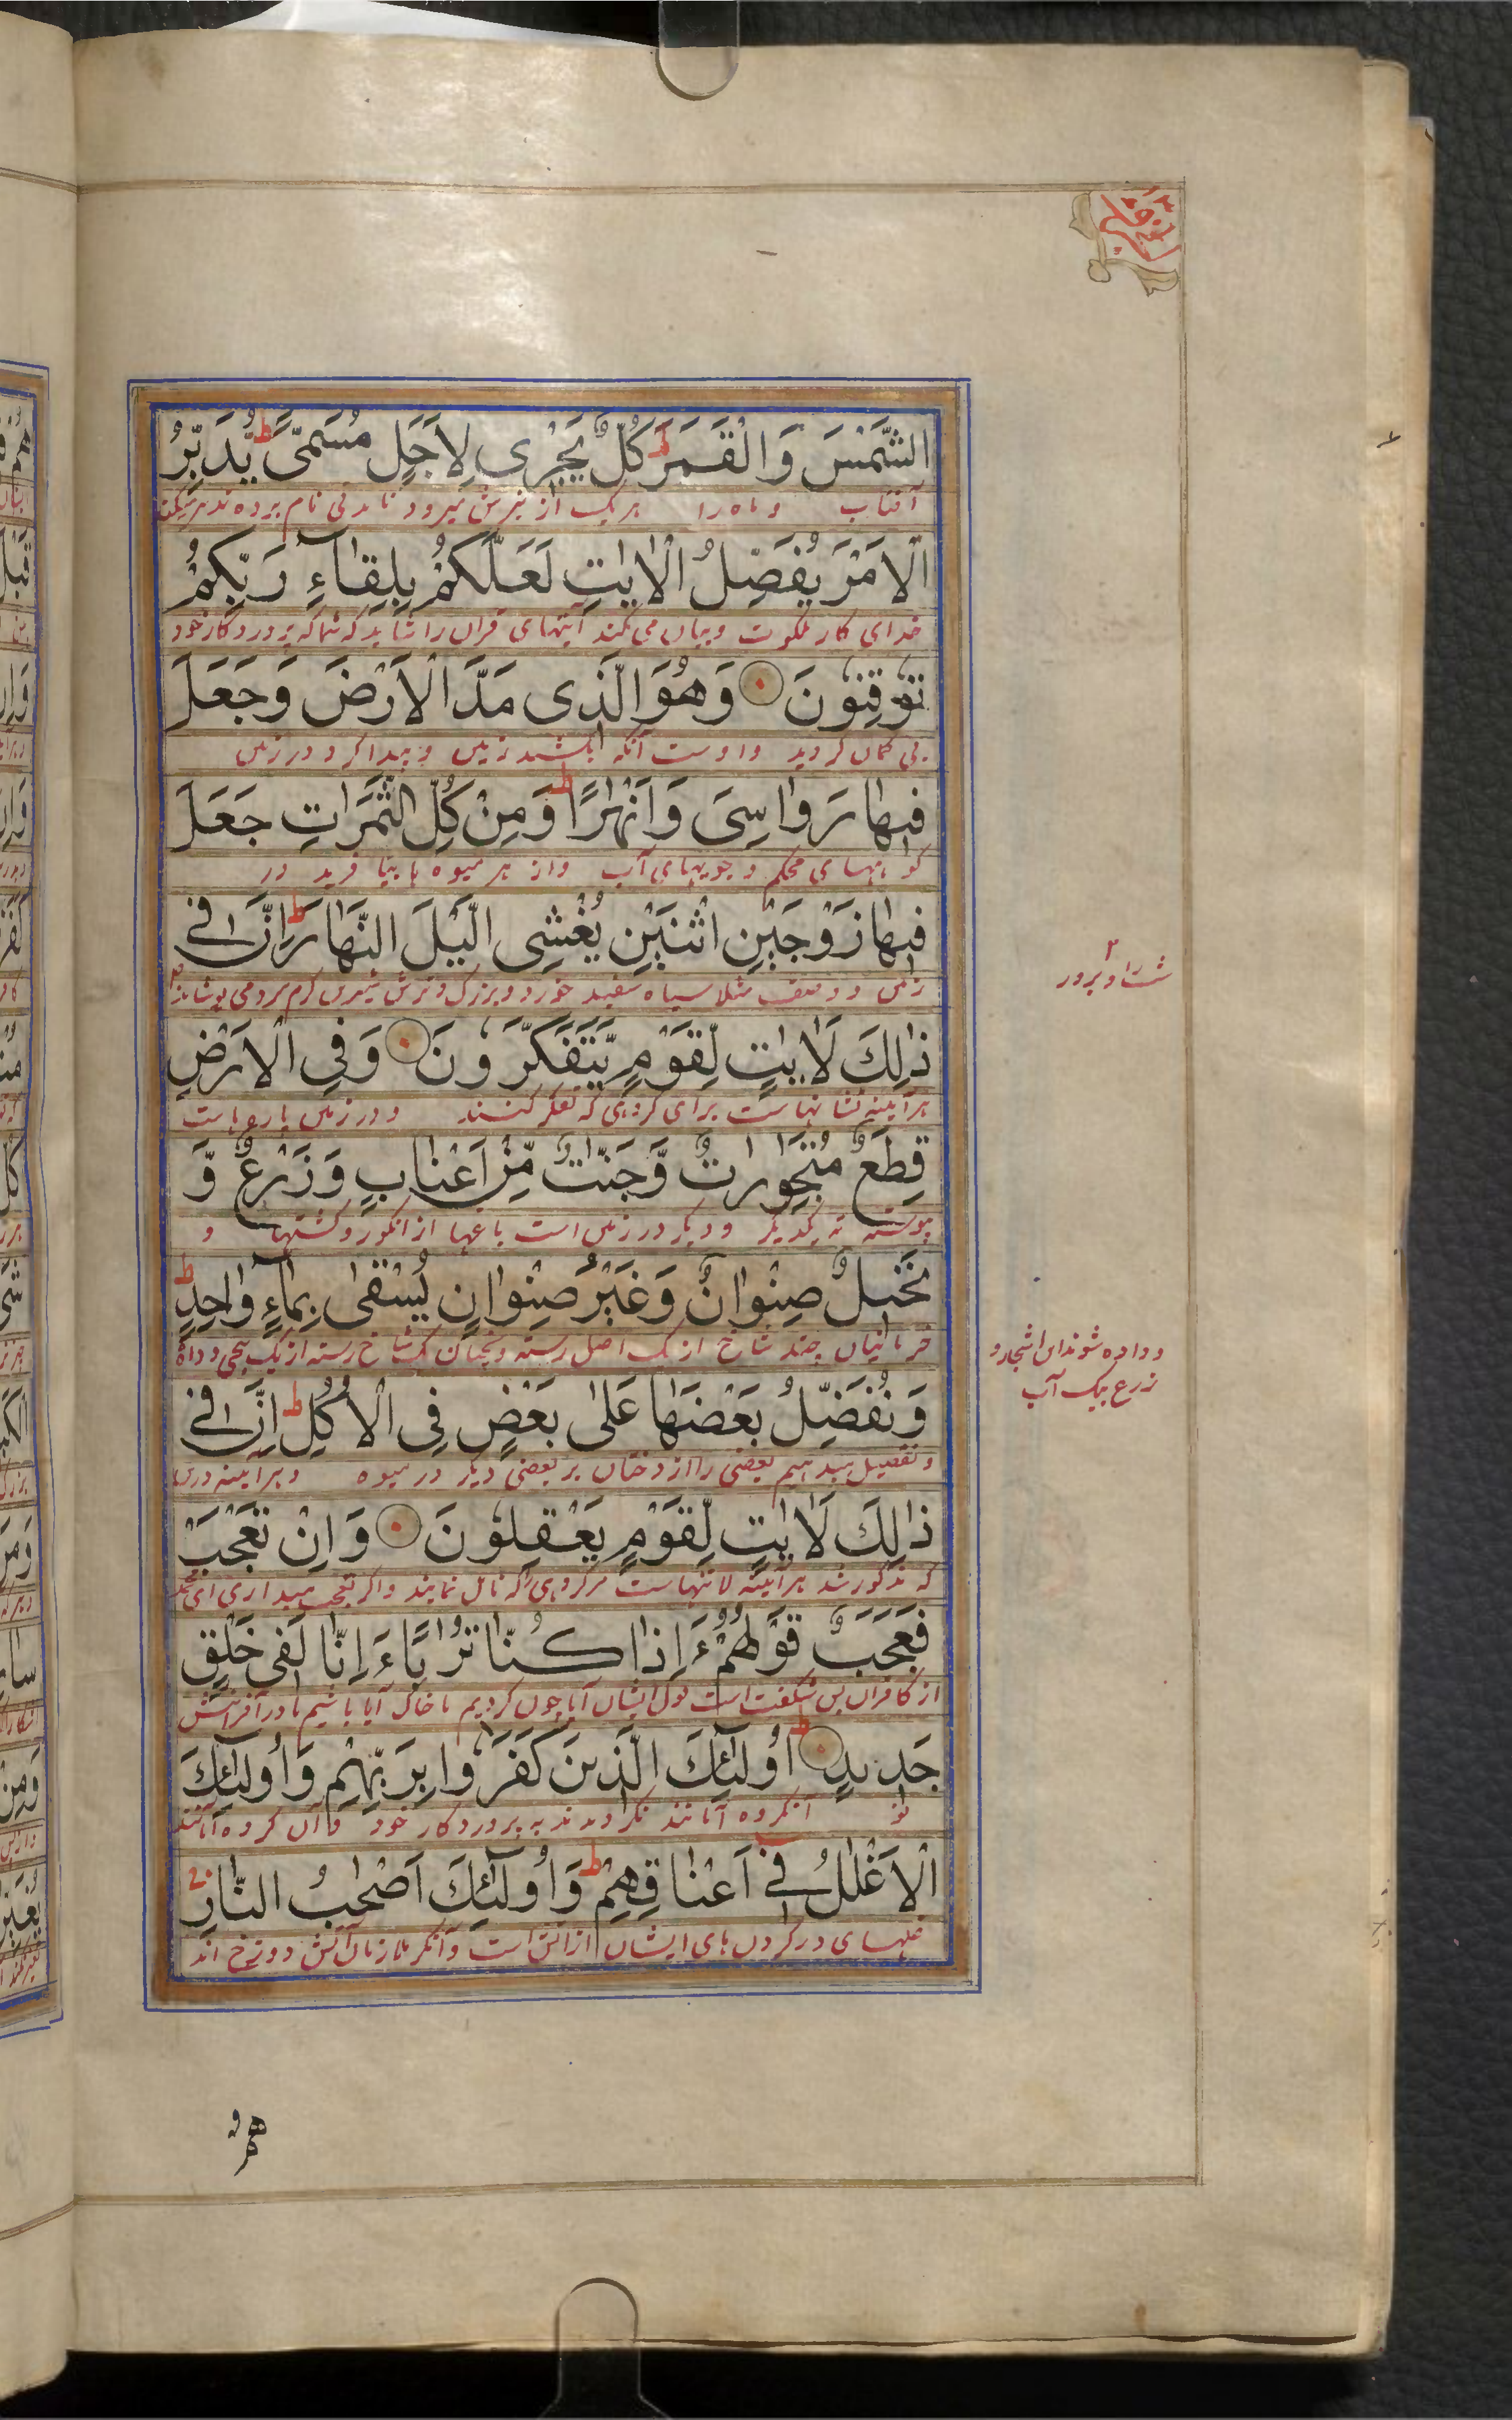 الشَّمْسَ وَالْقَمَرَ ط كُلٌّ يَجْرِى لِاَجَلٍ مُسَمًّى ط يُدَبِّرُ
آفتاب وماه را هر یک از بهر میرود تا مدتی نام برده تدبیر میکند
الْاَمْرَ يُفَصِّلُ الْاٰيٰتِ لَعَلَّكُمْ بِلِقَآءِ رَبِّكُمْ
خدای کار ملکوت وبیان می کند آیتهای قران را شاید که شما که پروردکار خود
تُوْقِنُوْنَ وَهُوَ الَّذِى مَدَّ الْاَرْضَ وَجَعَلَ
بی کمان کردید واوست آنکه بکشید زمین و پیدا کرد در زمین
فِيهَا رَوَاسِىَ وَاَنْهٰرًا ط وَمِنْ كُلِّ الثَّمَرَاتِ جَعَلَ
کوههای محکم وجویهای آب واز هر میوه ها بیافرید در
فِيهَا زَوْجَيْنِ اثْنَيْنِ يُغْشِى الَّيْلَ النَّهَارَ ط اِنَّ فِى
زمین دو صنف مثلا سیاه سفید خورد وبزرک وترش شیرین کرم سرد می پوشاند
ذٰلِكَ لَاٰيٰتٍ لِّقَوْمٍ يَّتَفَكَّرُوْنَ وَفِى الْاَرْضِ
هر آینه نشانهاست برای کروهی که تفکر کنند ودر زمین پارهاست
قِطَعٌ مُتَجٰوِرَاتٌ وَّجَنّٰتٌ مِّنْ اَعْنَابٍ وَزَرْعٌ وَّ
پیوسته به یکدیکر ودیکر در زمین است باغها از انکور وکشتها و
نَخِيلٌ صِنْوَانٌ وَغَيْرُ صِنْوَانٍ يُسْقٰى بِمَآءٍ وَاحِدٍ ط
خرمابنان چند شاخ از یک اصل رسته یک شاخ رسته از یک بیخی
وداده شوند این اشجار و
زرع بیک آب
وَنُفَضِّلُ بَعْضَهَا عَلٰى بَعْضٍ فِى الْاُكُلِ ط اِنَّ فِى
وتفضیل میدهیم بعضی را از درختان بر بعضی دیکر در میوه وهر آینه درین
ذٰلِكَ لَاٰيٰتٍ لِّقَوْمٍ يَعْقِلُوْنَ وَاِنْ تَعْجَبْ
که مذکور شد هر آینه نشانهاست مر کروهی را که تامل نمایند واکر تعجب میداری ای
فَعَجَبٌ قَوْلُهُمْ ءَاِذَا كُنَّا تُرَابًا ءَاِنَّا لَفِى خَلْقٍ
از کافران پس شکفت است قول ایشان آیا چون کردیم ما خاک آیا باشیم ما در آفرینش
جَدِيدٍ ط اُولٰٓئِكَ الَّذِينَ كَفَرُوا بِرَبِّهِمْ وَاُولٰٓئِكَ
نو آنکروه آنانند نکرویدند به پروردکار خود وآن کروه آنانند
الْاَغْلٰلُ فِى اَعْنَاقِهِمْ ط وَاُولٰٓئِكَ اَصْحٰبُ النَّارِ
غلهای در کردن های ایشان از آتش است وآنکروه ملازمان آتش دوزخ اند
هُمْ